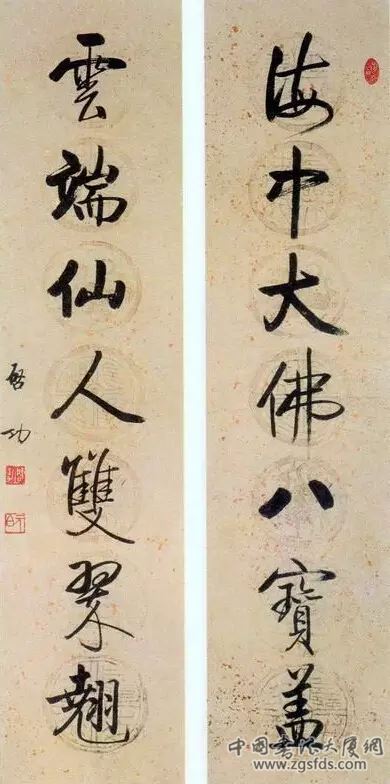 海中大佛八寶蓋
雲端仙人雙翠翹
啓功
中国书法大厦網
www.zgsfds.com